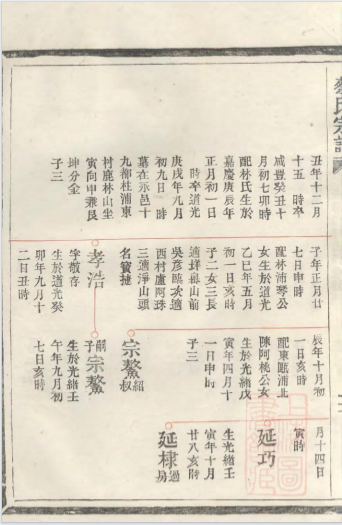 氏宗譜
丑年十二月
十五 時卒
咸豐癸丑十
月初七卯時
配林氏生於
嘉慶庚辰年
正月初一日
時卒道光
庚戌年九月
初九日 時
墓在示邑十
九都杜浦東
村鹿林山坐
寅向甲兼艮
坤分金
子三
子年正月廿
七日申時
配林沛琴公
女生於道光
乙巳年五月
初一日亥時
子二女三長
適垟鼻山前
吳彥臨次適
西村盧阿珠
三適淨山頭
名實
孝浩
字敬春
生於道光癸
卯年九月十
二日丑時
辰年十月初
一日亥時
配東甌浦北
陳阿桃公女
生於光緒戊
寅年四月十
一日申時
子三
宗鰲 紹叔
嗣子 宗鰲
生於光緒壬
午年九月初
七日亥時
月十四日
寅時
延巧
生光緒壬
寅年十月
廿八亥時
延棣 過房